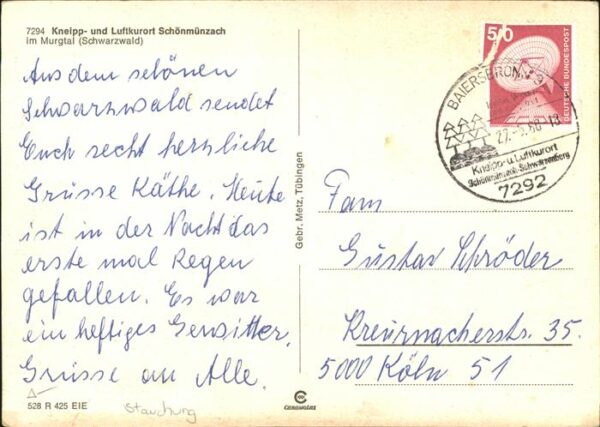 7294 Kneipp- und Luftkurort Schönmünzach
im Murgtal (Schwarzwald)
Aus dem schönen
Schwarzwald sendet
Euch recht herzliche
Grüsse Käthe. Heute
ist in der Nacht das
erste mal Regen
gefallen. Es war
ein heftiges Gewitter.
Grüsse an Alle.
528 R 425 EIE
Stauchung
Gebr. Metz, Tübingen
Cekacolor
50
DEUTSCHE BUNDESPOST
BAIERSBRONN 3
Kneipp-u. Luftkurort
Schönmünzach-Schwarzenberg
7292
Fam
Gustav Schröder
Kreuznacherstr. 35.
5000 Köln 51